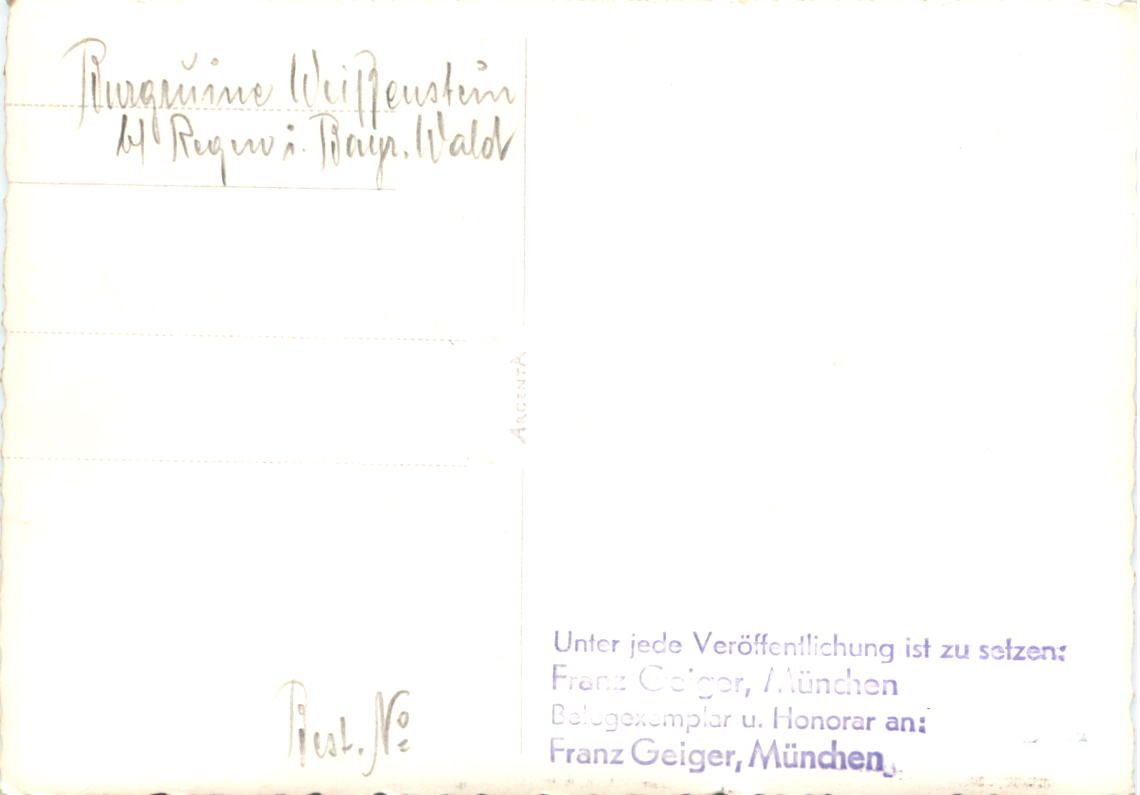 Burgruine Weißenstein
b/ Regen i. Bayr. Wald
ARGENTA
Best. No
Unter jede Veröffentlichung ist zu setzen:
Franz Geiger, München
Belegexemplar u. Honorar an:
Franz Geiger, München